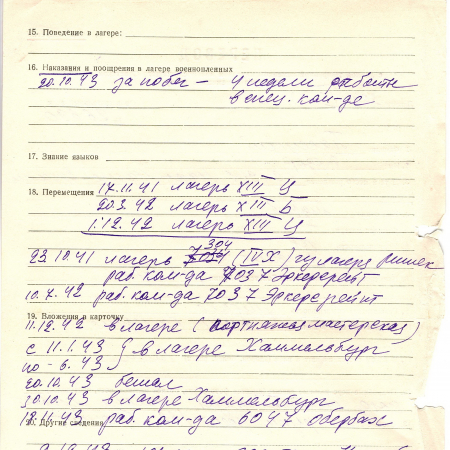 15. Поведение в лагере:
16. Наказания и поощрения в лагере военнопленных
20.10.43 за побег — 4 недели отбыт
в спец. ком-де
17. Знание языков
18. Перемещения 17.11.41 лагерь XIII Ц
20.3.42 лагерь XIII Б
1.12.42 лагерь XIII Ц
304
23.10.41 лагерь 7037 (IV Х)
раб. ком-да 7037 Эркедерейт
10.7.42 раб. ком-да 7037 Эркедерейт
19. Вложения в карточку
11.12.42 в лагере (портняжная мастерская)
с 11.1.43 } в лагере Хаммельбург
по - 6.43
20.10.43 бежал
30.10.43 в лагере Хаммельбург
20. Другие сведения
18.11.43 раб. ком-да 6047 Обербах